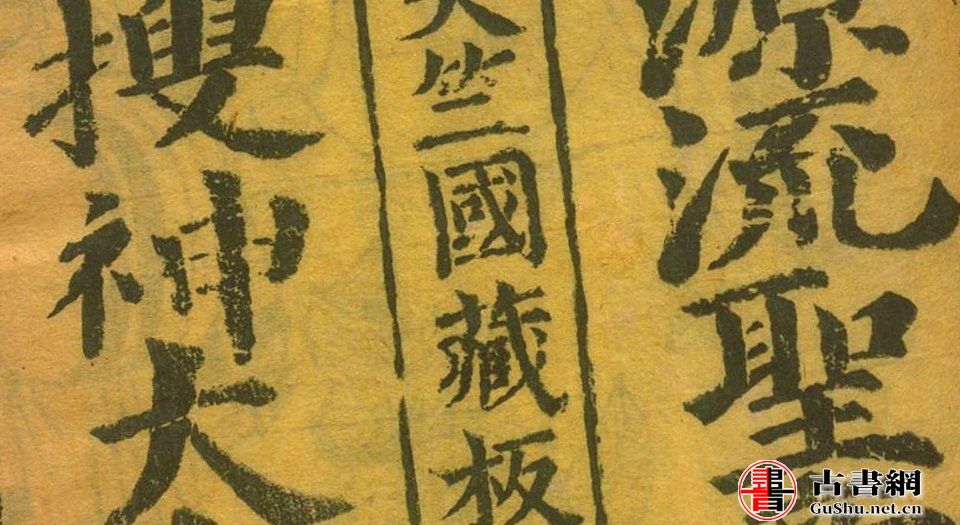 源流聖
天竺國藏板
搜神大
古書網
GuShu.net.cn